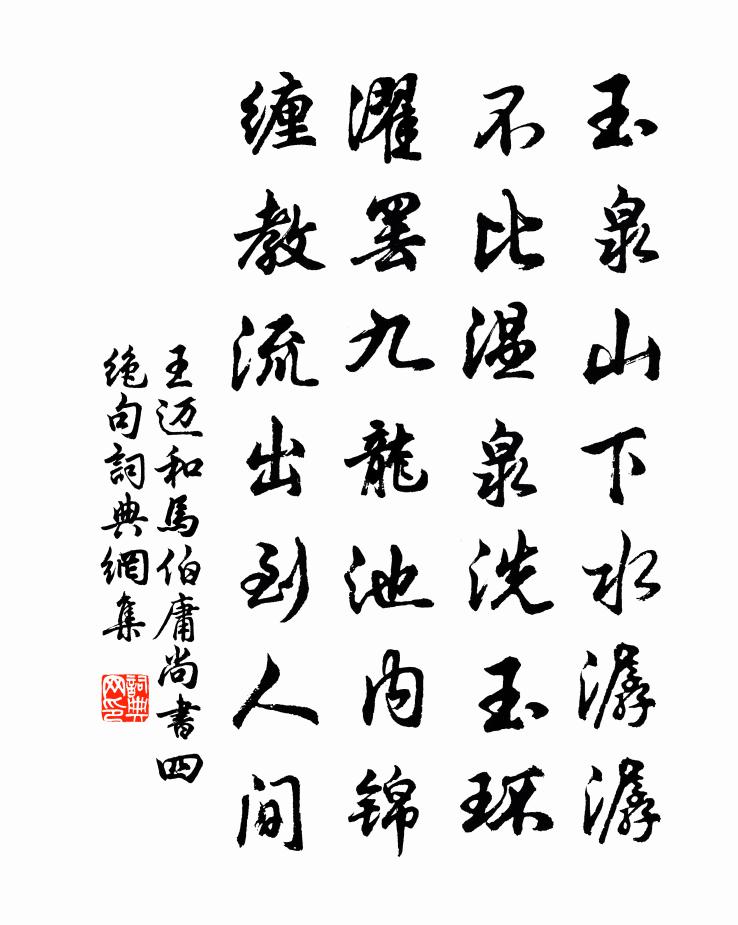 玉泉山下水潺潺
不比温泉洗玉环
濯罢九龍池内锦
缠教流出到人间
王迈和馬伯庸尚書四
绝句詞典網集
詞典网印